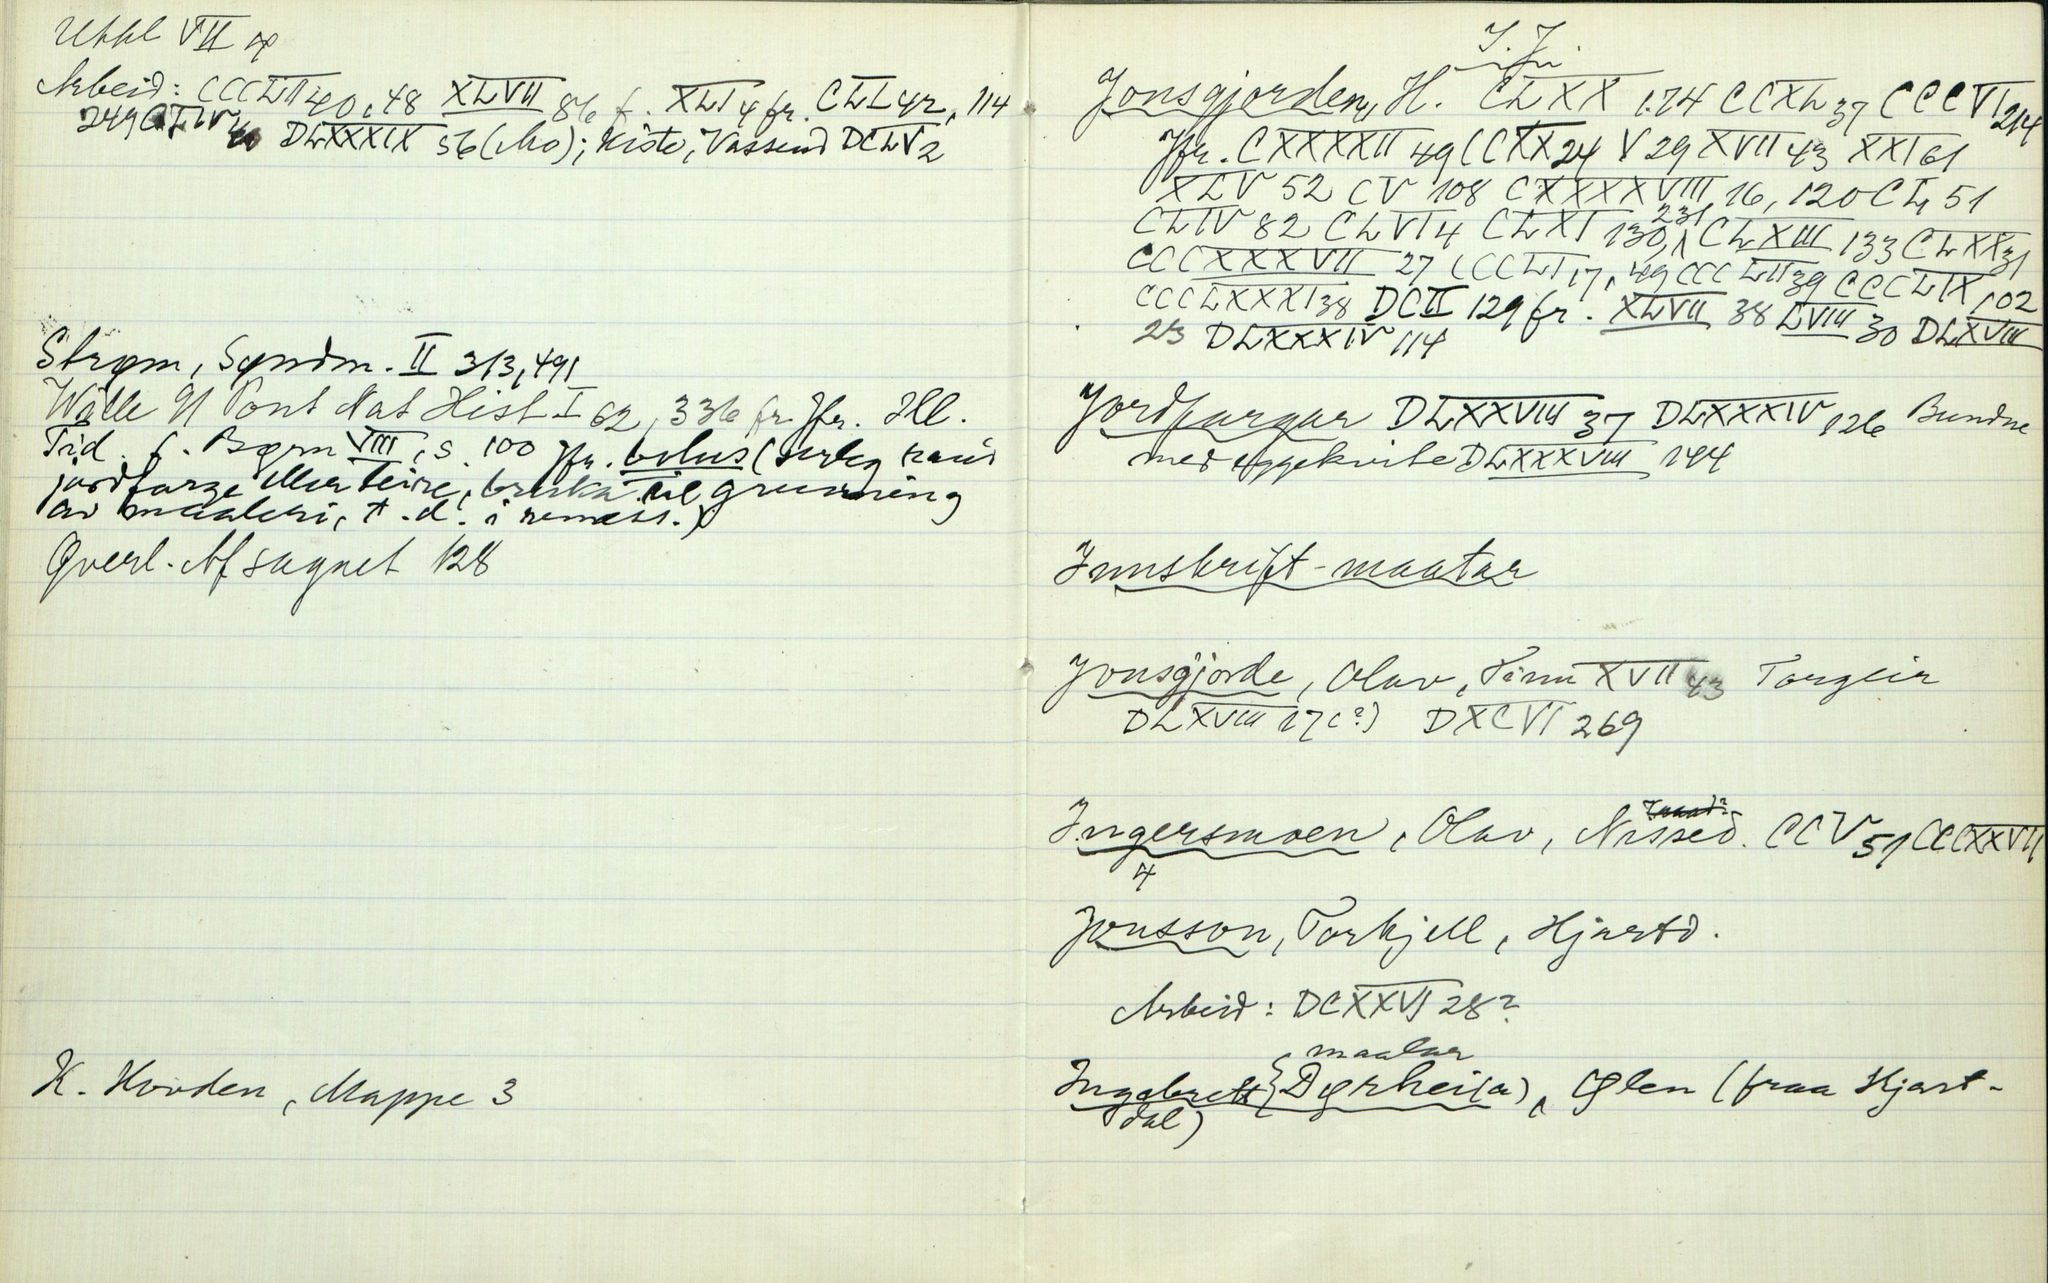 Uhkl VII 98
Arbeid: CCCLII 40, 48 XLVII 86 f. XLI 4 fr. CLI 42, 114
249 DLXXXIX 56 (Mo); Kiste, Vassend DCLV 2
Strøm, Søndm. II 313, 491
Tid. f. Børn VIII, s. 100 jfr. bolus (serleg raud
jordfarge, brukt til grunning
av maaleri, t. d. i
Qverl. Af sagnet 128
K. Hovden, Mappe 3
I. J.
Jonsgjorden, H. CLXX 174 CCXL 37 CCCVI 214
Jfr. CXXXXII 49 CCXX 24 V 29 XVII 43 XXI 61
XLV 52 CV 108 CXXXXVIII 16, 120 CL 51
CLIV 82 CLVI 4 CLXI 130, 231 CLXIII 133 CLXX 31
CCCXXXVII 27 CCCLI 17, 49 CCCLII 39 CCCLIX 102
CCCLXXXI 38 DCII 129 fr. XLVII 38 LVIII 30 DLXVIII
23 DLXXXIV 114
Jordfargar DLXXVIII 37 DLXXXIV 126 Bundne
med eggekvite DLXXXVIII 144
Innskrift-maatar
Jonsgjorde, Olav, Tinn XVII 43 Torgeir
DLXVIII 17(?) DXCVI 269
Ingersmoen, Olav, Nissed. CCV 51 CCCXXVII
4
Jonsson, Torkjell, Hjartd.
Arbeid: DCXXVI 28?
maalar
Ingebrett Dyrhei(a), Ølen (fraa Hjart-
dal)